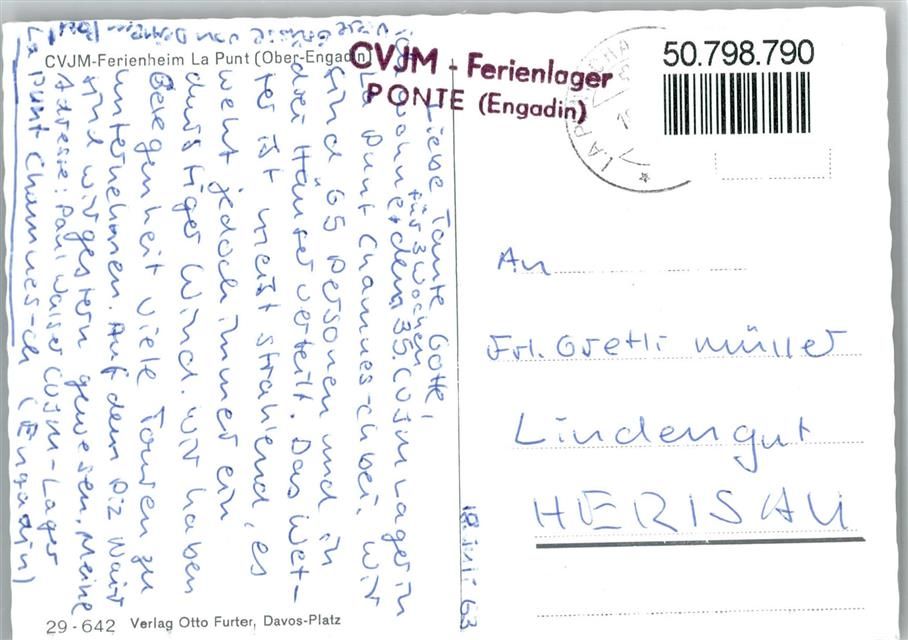 CVJM-Ferienheim La Punt (Ober-Engadin)
CVJM - Ferienlager
PONTE (Engadin)
50.798.790
18. Juli 63
Liebe Tante Gotte,
für 3 Wochen
wohne dem 35. CVJM Lager in
La Punt Chamues-ch bei. Wir
sind 65 Personen und in
drei Häuser verteilt. Das Wet-
ter ist meist strahlend, es
weht jedoch immer ein
durstiger Wind. Wir haben
Gelegenheit viele Touren zu
unternehmen. Auf dem Piz
sind wir gestern gewesen. Meine
Adresse: Paul Walser CVJM-Lager
La Punt Chamues-ch (Engadin)
Viele Grüsse von Deinem Paul
An
Frl. Gretli Müller
Lindengut
HERISAU
29-642 Verlag Otto Furter, Davos-Platz